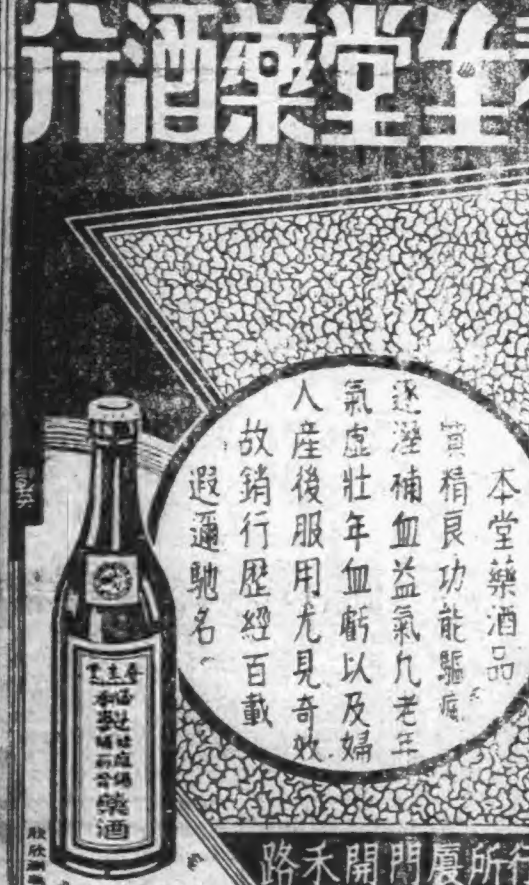 生堂藥酒行
本堂藥酒品
質精良功能驅瘋
逐溼補血益氣凢老年
氣虛壯年血虧以及婦
人產後服用尤見奇效
故銷行歷經百載
遐邇馳名。
藥酒
行所廈門開禾路